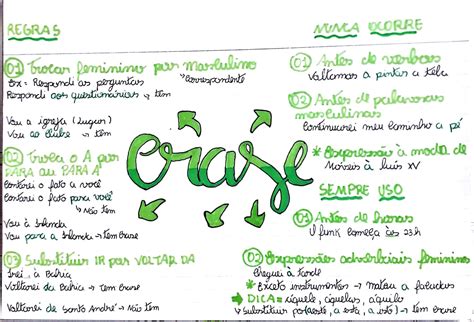 REGRAS
01 Trocar feminino por masculino
Ex: Respondi as perguntas
↳ correspondente
Respondi aos questionários → tem
Vou a igreja (lugar)
Vou ao clube → tem
02 Troca o A por
PARA ou PARA A
Contarei o fato a você
Contarei o fato para você
↳ Não tem
Vou à Irlanda
Vou para a Irlanda → tem crase
03 Substituir IR por VOLTAR DA
Irei à Bahia
Voltarei da Bahia → tem crase
Voltarei de Santo André → Não tem
Crase
NUNCA OCORRE
01 Antes de verbos
Voltamos a pintar a tela
02 Antes de palavras
masculinas
Continuarei meu caminho a pé
* Expressão à moda de
Móveis à Luís XV
SEMPRE USO
01 Antes de horas
O funk começa às 23h
02 Expressões adverbiais femininas
Cheguei à tarde
* Exceto instrumentos → matou a facadas
→ DICA = àquele, àquelas, àquilo
↳ Substituir por (este, a esta, a isto) → tem crase